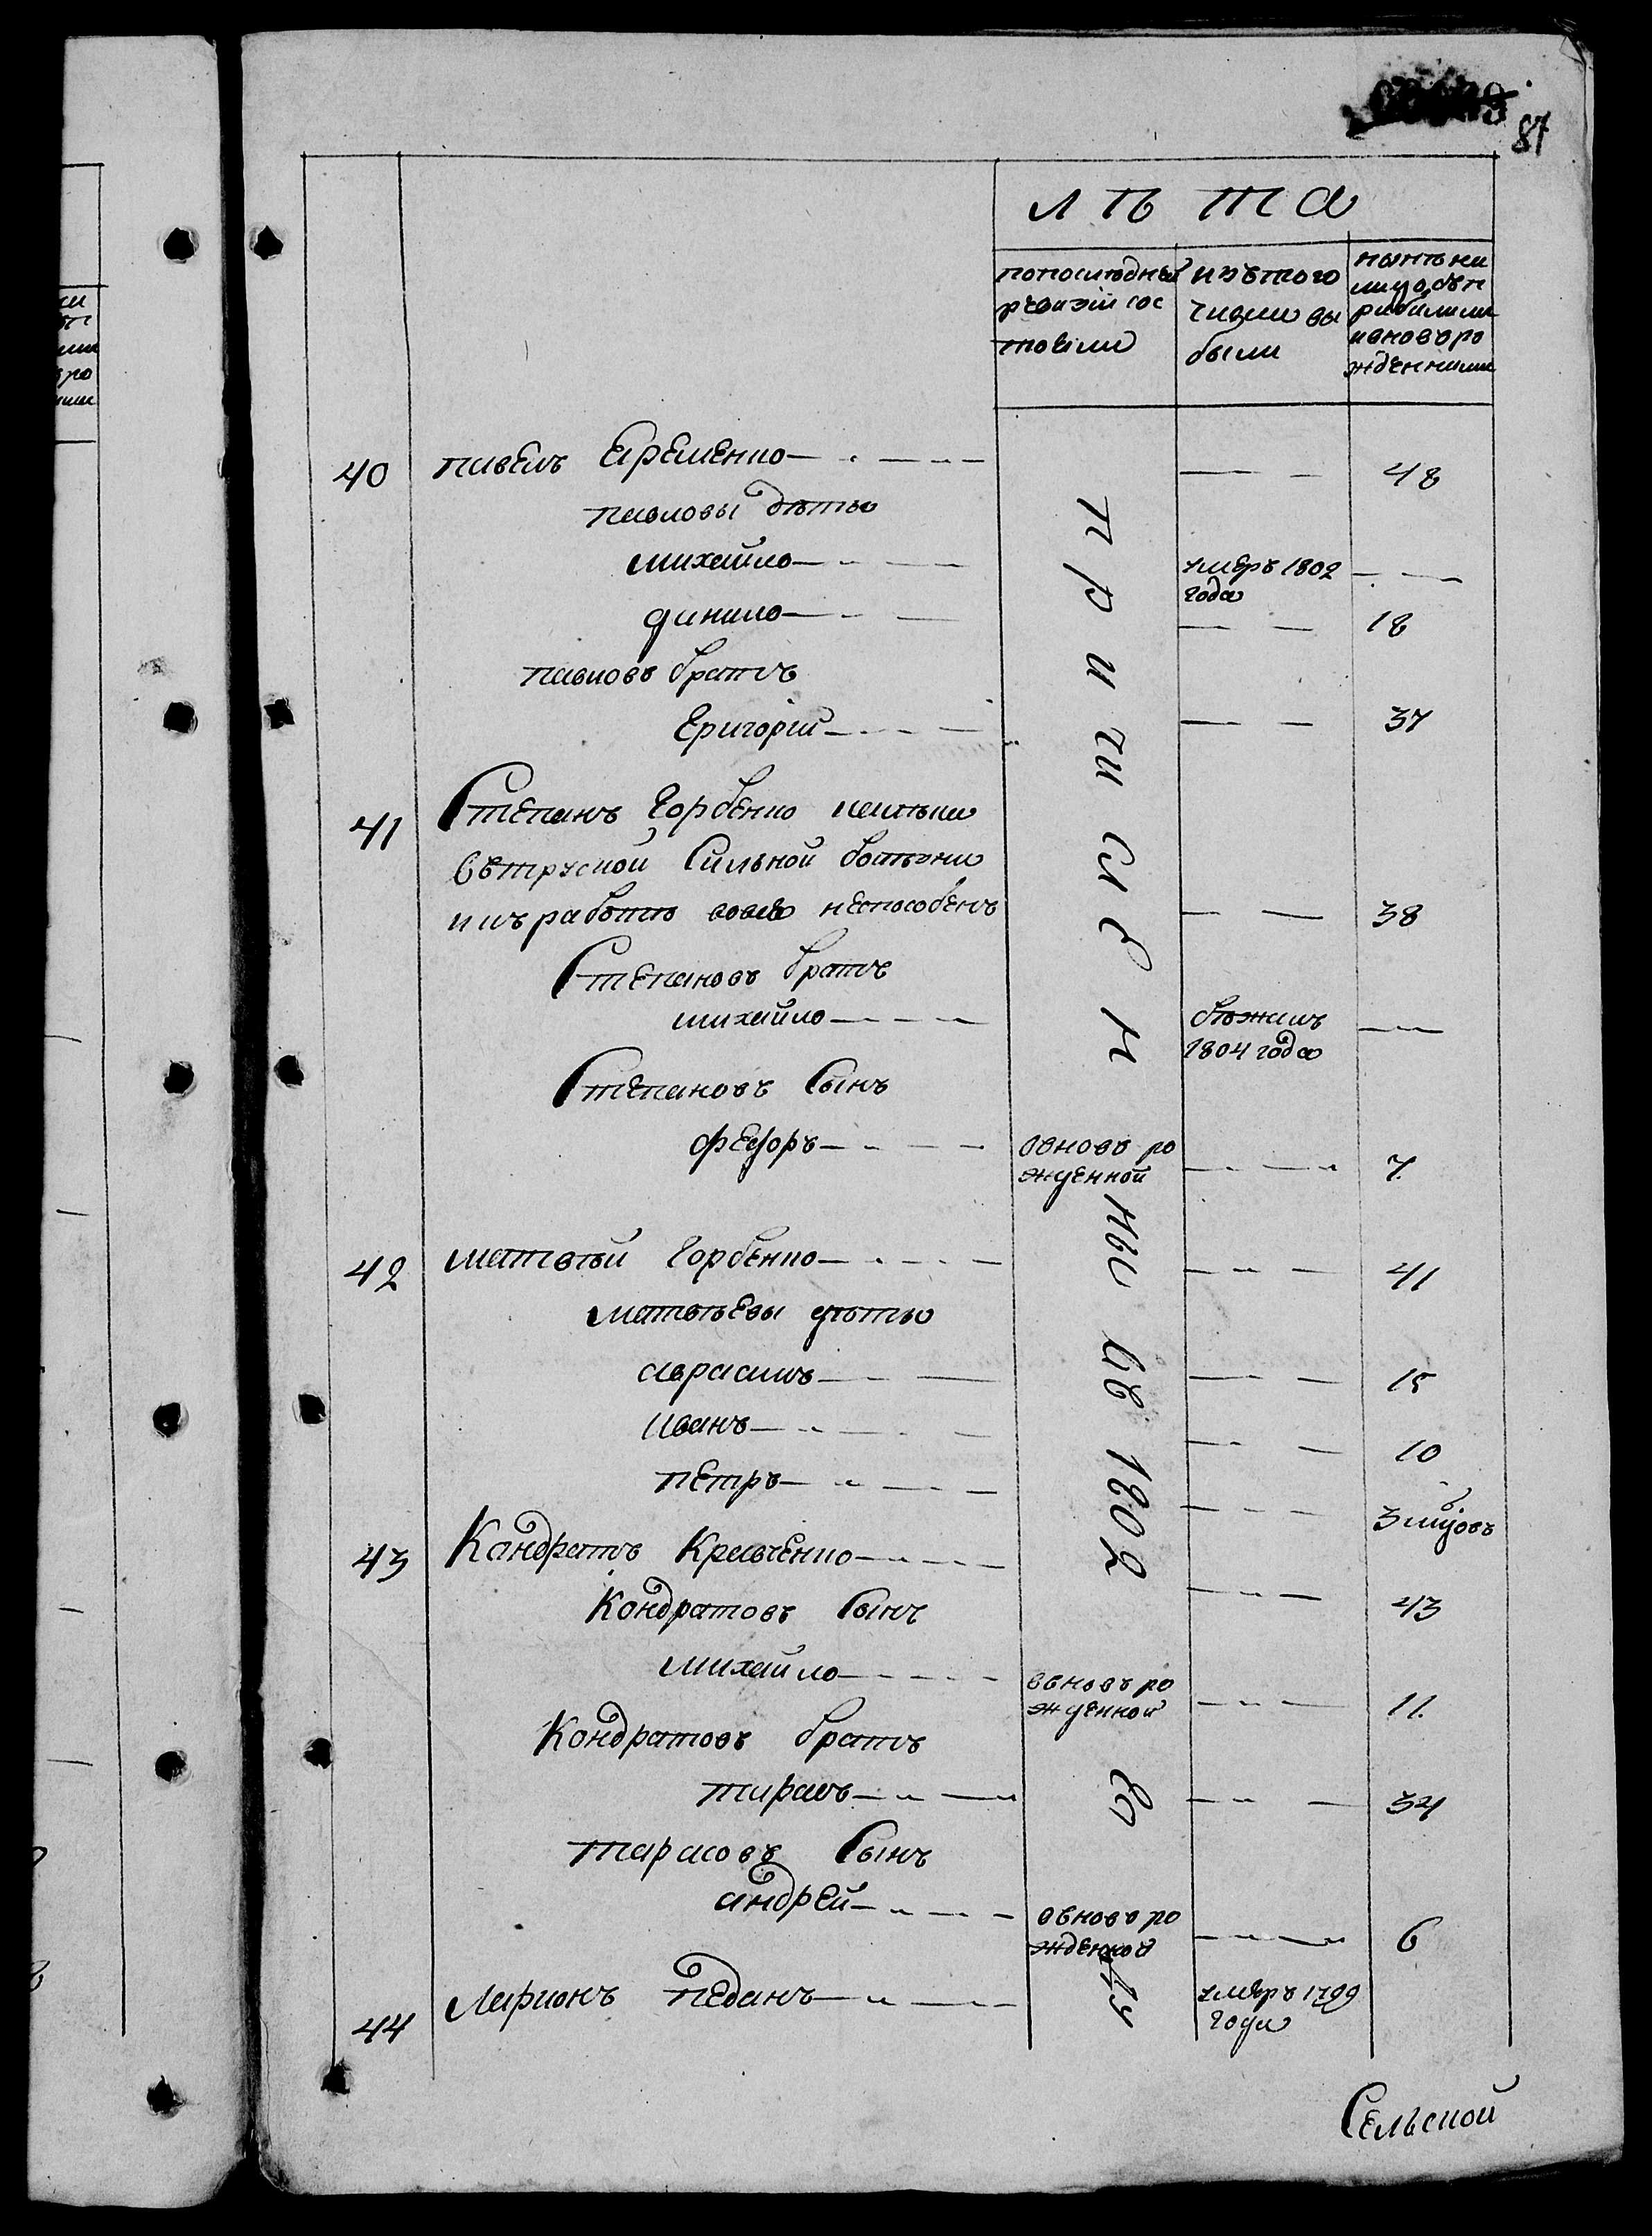 87
Лѣта
попослѣдней
ревизіи сос
тояли
изътого
числа вы
были
нынѣ на
лицо съ п
рибылыми
иноворо
жденными
40 павелъ Еременко 48
павловы дѣти
михайло умеръ 1802
года
данило 18
павловъ братъ
Григорій 37
41 Степанъ Горбенко
Сильной болѣзни
и къ работѣ вовсе неспособенъ 38
Степановъ братъ
михайло бѣжалъ
1804 года
Степановъ Сынъ
федоръ вновь ро
жденной 7
42 матвѣй Горбенко 41
матвѣевы дѣти
авраамъ 15
иванъ 10
петръ 3
43 Кандратъ Кравченко
Кондратовъ Сынъ 43
михайло вновь ро
жденной 11.
Кондратовъ братъ
тарасъ 34
тарасовъ Сынъ
андрей вновь ро
жденной 6
44 Ларионъ педанъ умеръ 1799
года
причислены въ 1802 году
Сельской